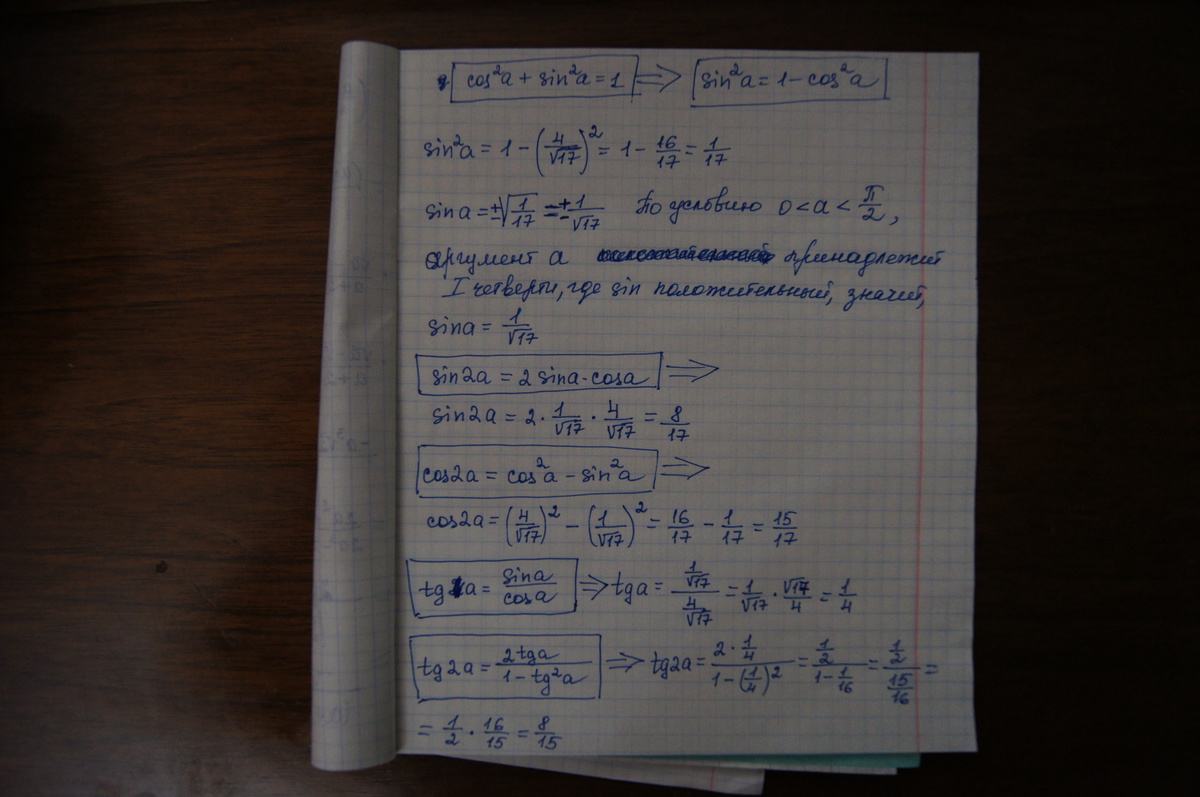 cos²a + sin²a = 1 ⇒ sin²a = 1 - cos²a
sin²a = 1 - (4/√17)² = 1 - 16/17 = 1/17
sina = ±√(1/17) = ±1/√17 По условию 0 < a < π/2,
аргумент a принадлежит
I четверти, где sin положительный, значит,
sina = 1/√17
sin2a = 2 sina · cosa ⇒
sin2a = 2 · 1/√17 · 4/√17 = 8/17
cos2a = cos²a - sin²a ⇒
cos2a = (4/√17)² - (1/√17)² = 16/17 - 1/17 = 15/17
tga = sina/cosa ⇒ tga = (1/√17)/(4/√17) = 1/√17 · √17/4 = 1/4
tg2a = 2tga/(1 - tg²a) ⇒ tg2a = (2 · 1/4)/(1 - (1/4)²) = (1/2)/(1 - 1/16) = (1/2)/(15/16) =
= 1/2 · 16/15 = 8/15